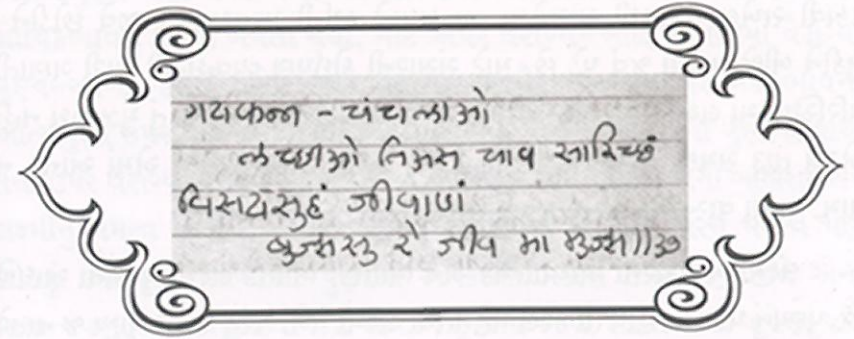 गयकन्न - चंचलाओ
लच्छीओ तिअस चाव सारिच्छं
विसयसुहं जीवाणं
बुज्झसु रे जीव मा मुज्झ।।३७